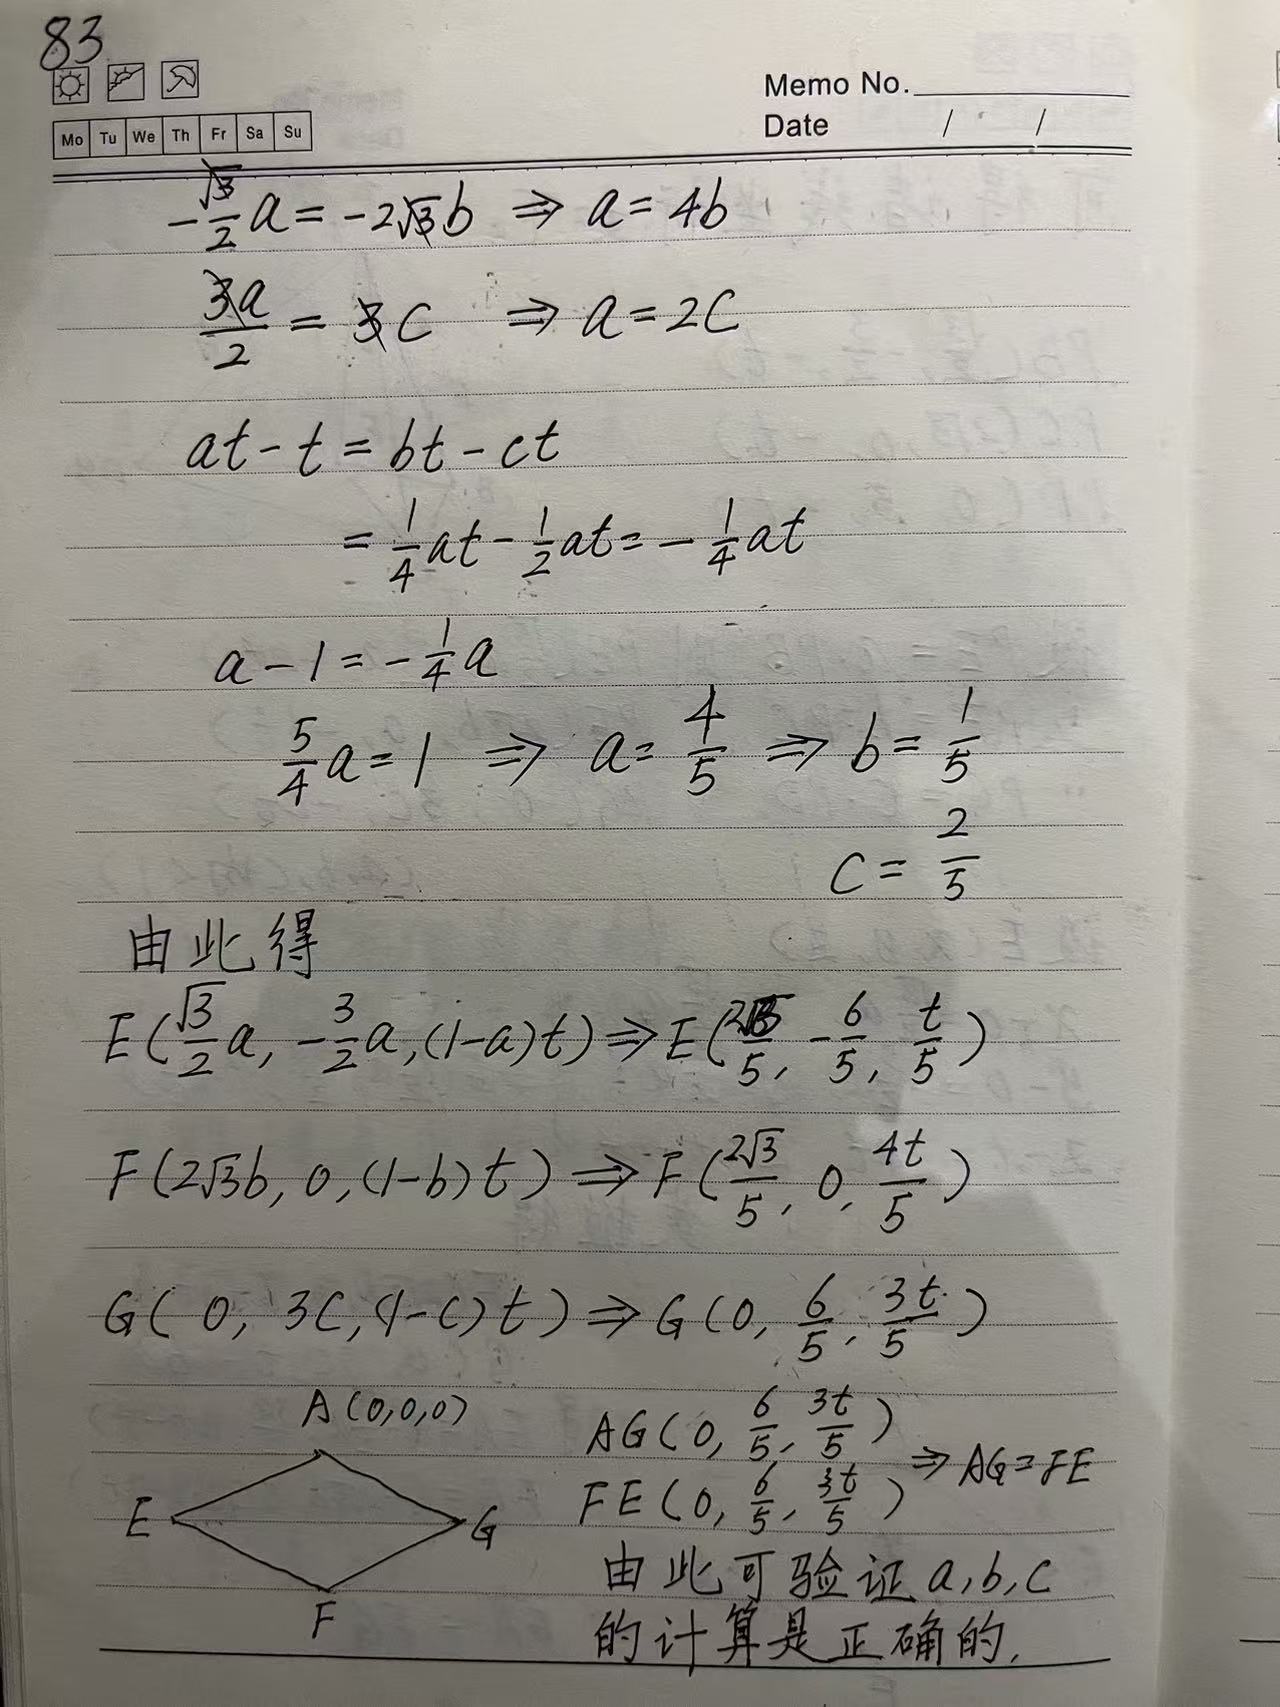 83
Memo No.
Mo Tu We Th Fr Sa Su
Date / /
-√3/2 a = -2√3b ⇒ a = 4b
3a/2 = 3c ⇒ a = 2c
at - t = bt - ct
= 1/4 at - 1/2 at = -1/4 at
a - 1 = -1/4 a
5/4 a = 1 ⇒ a = 4/5 ⇒ b = 1/5
c = 2/5
由此得
E(√3/2 a, -3/2 a, (1-a)t) ⇒ E(2√3/5, -6/5, t/5)
F(2√3b, 0, (1-b)t) ⇒ F(2√3/5, 0, 4t/5)
G(0, 3c, (1-c)t) ⇒ G(0, 6/5, 3t/5)
A(0,0,0)
E
G
F
AG(0, 6/5, 3t/5)
FE(0, 6/5, 3t/5) ⇒ AG=FE
由此可验证a,b,c
的计算是正确的.